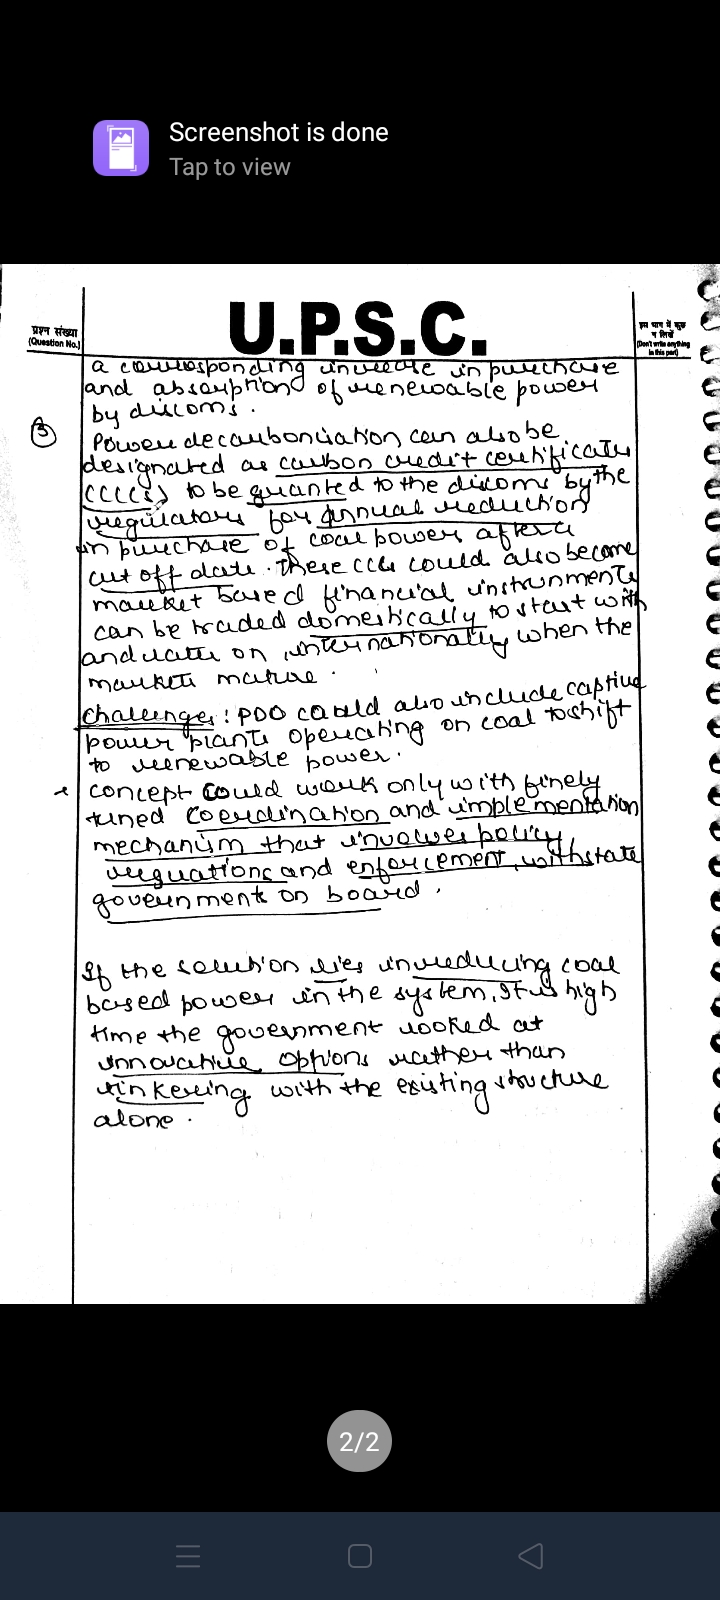 Screenshot is done
Tap to view
प्रश्न संख्या
(Question No.)
U.P.S.C.
इस भाग में कुछ
न लिखें
(Don't write anything
in this part)
a corresponding increase in purchase
and absorption of renewable power
by discoms.
③ Power decarbonisation can also be
designated as carbon credit certificates
(CCCs) to be granted to the discoms by the
regulators for annual reduction
in purchase of coal power after a
cut off date. These CCCs could also become
market based financial instruments
can be traded domestically to start with
and later on internationally when the
markets mature.
Challenges: PDO could also include captive
power plants operating on coal to shift
to renewable power.
concept could work only with finely
tuned coordination and implementation
mechanism that involves policy
regulations and enforcement, with state
government on board.
If the solution lies in reducing coal
based power in the system, It is high
time the government looked at
innovative options rather than
tinkering with the existing structure
alone.
2/2